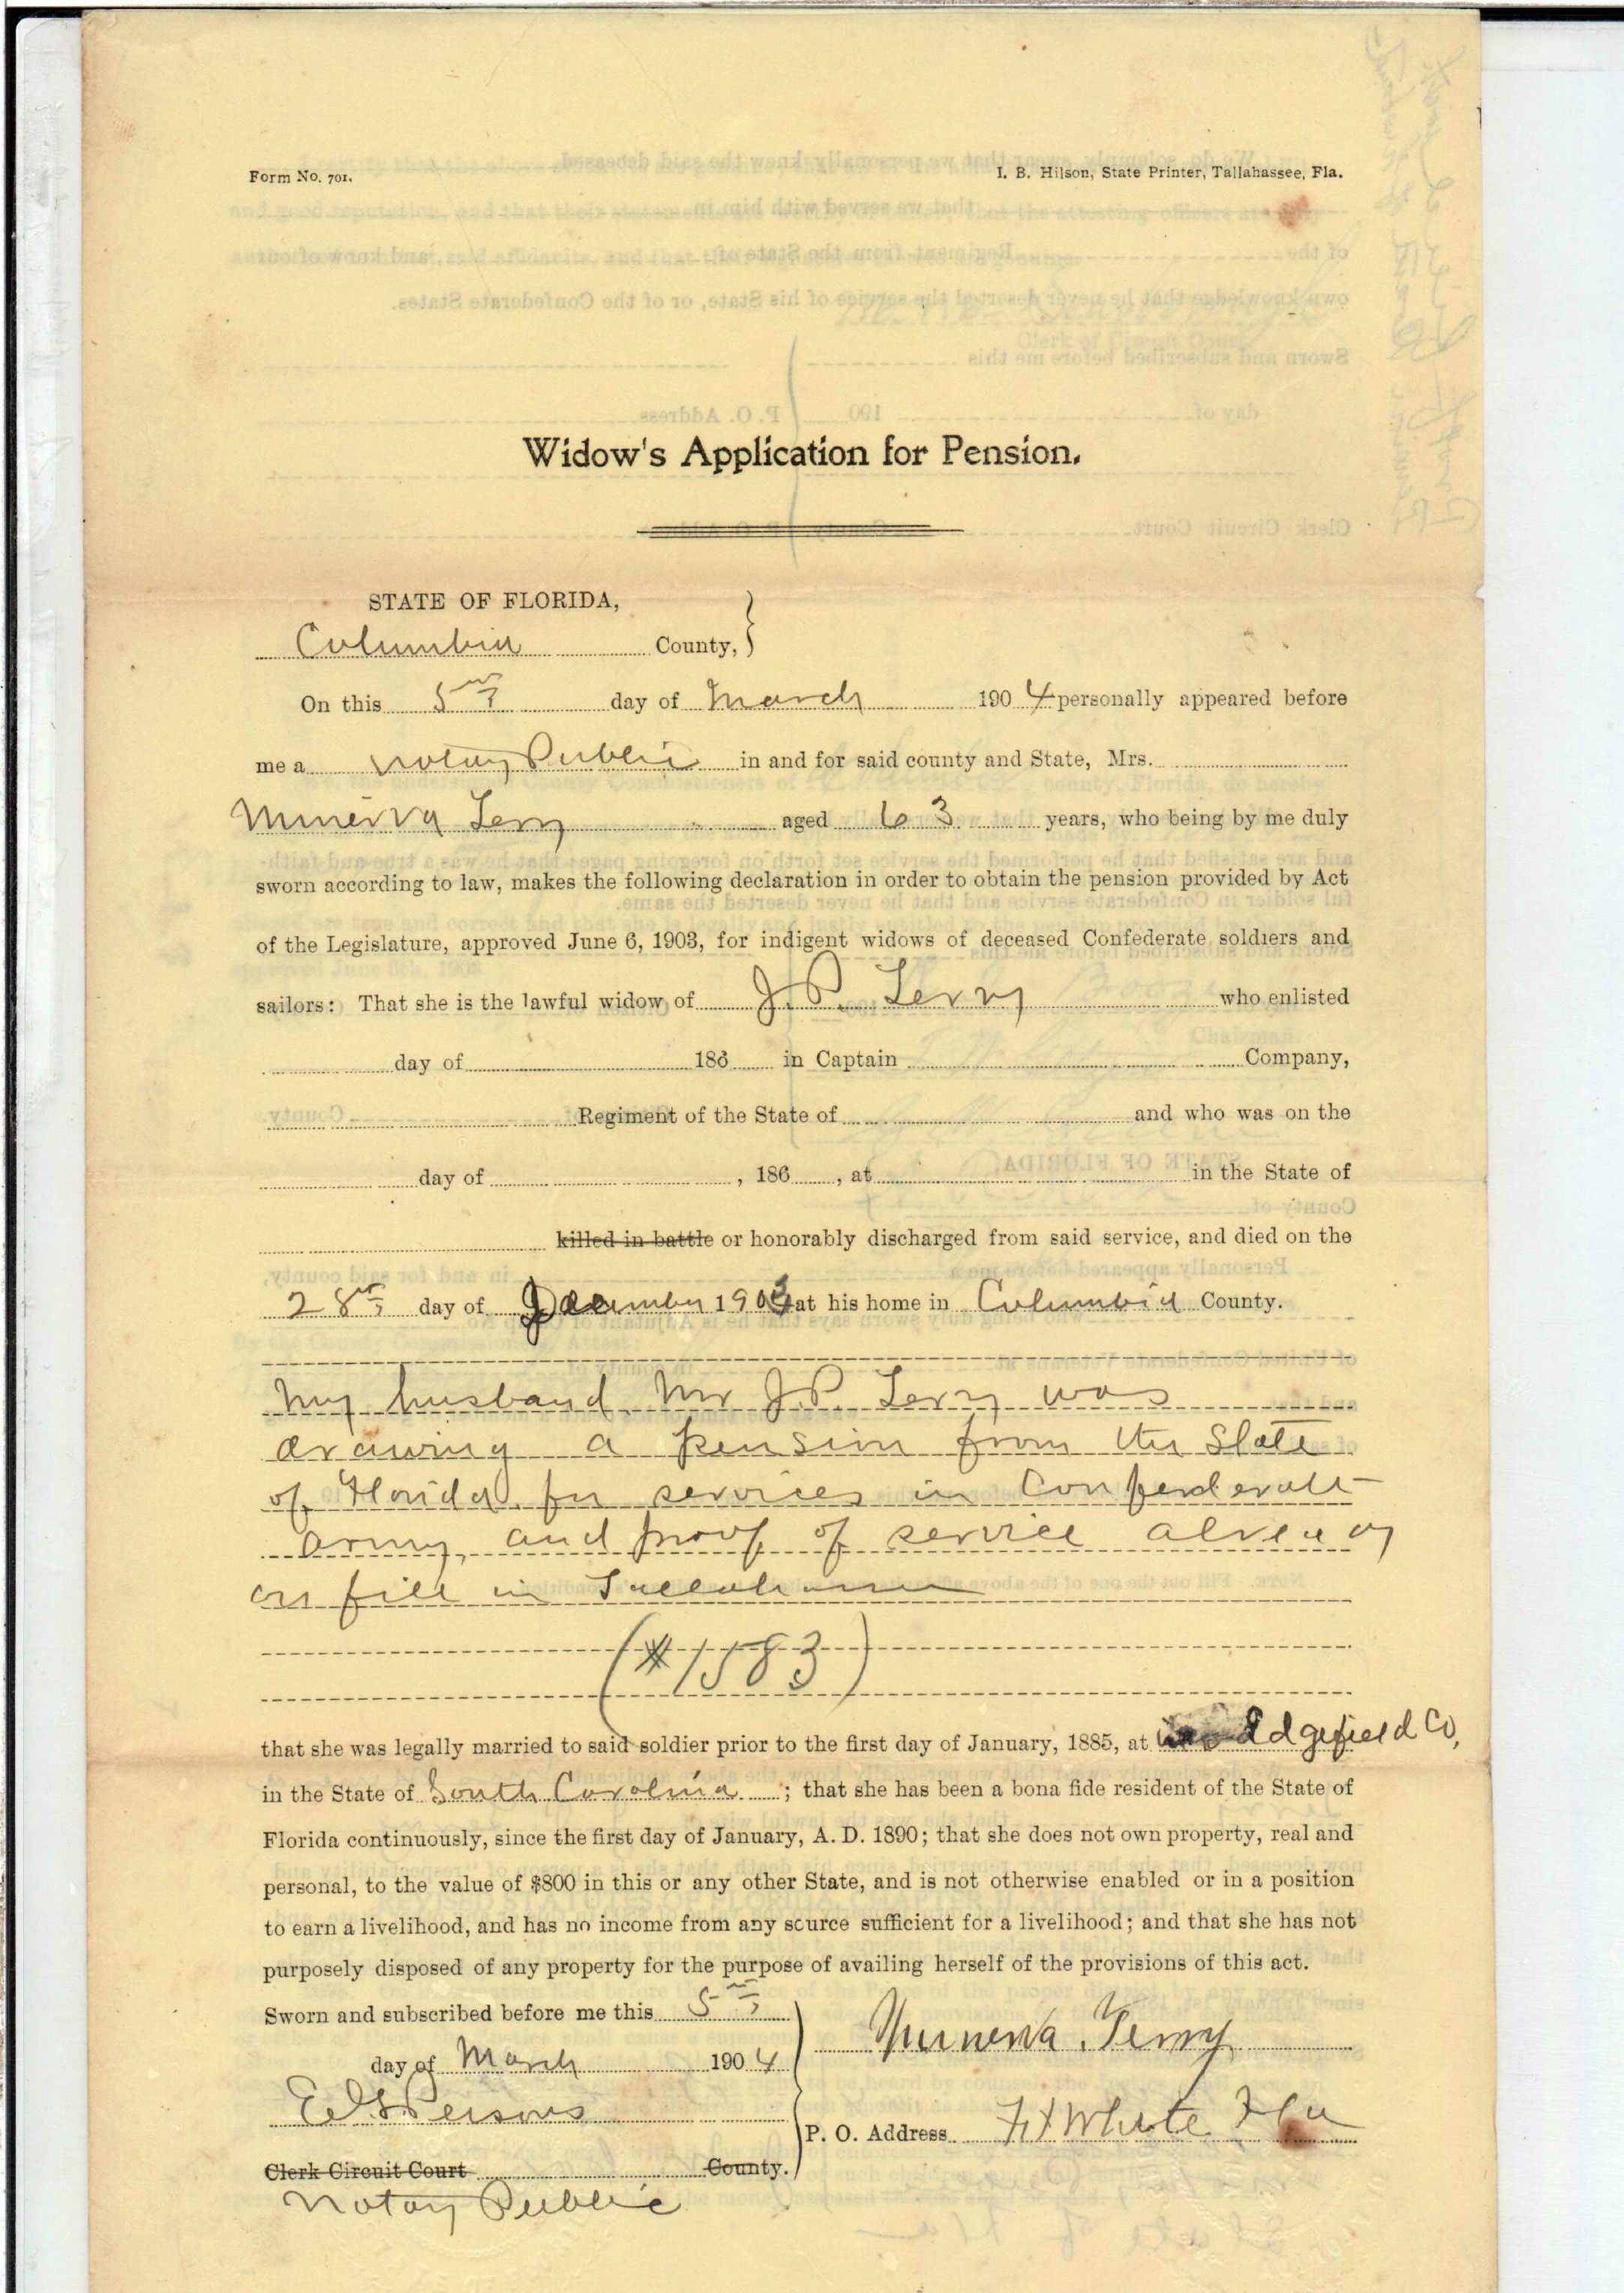 Form No. 701.
I. B. Hilson, State Printer, Tallahassee, Fla.
Widow's Application for Pension.
STATE OF FLORIDA,
Columbia County,
On this 5th day of March 1904 personally appeared before
me a Notary Public in and for said county and State, Mrs.
Minerva Terry aged 63 years, who being by me duly
sworn according to law, makes the following declaration in order to obtain the pension provided by Act
of the Legislature, approved June 6, 1903, for indigent widows of deceased Confederate soldiers and
sailors: That she is the lawful widow of J. P. Terry who enlisted
day of 186 in Captain Company,
Regiment of the State of and who was on the
day of , 186 , at in the State of
killed in battle or honorably discharged from said service, and died on the
28th day of December 1903 at his home in Columbia County.
My husband Mr J. P. Terry was
drawing a pension from the State
of Florida for services in Confederate
army, and proof of service already
on file in Tallahassee
(#1583)
that she was legally married to said soldier prior to the first day of January, 1885, at Edgefield Co,
in the State of South Carolina ; that she has been a bona fide resident of the State of
Florida continuously, since the first day of January, A. D. 1890; that she does not own property, real and
personal, to the value of $800 in this or any other State, and is not otherwise enabled or in a position
to earn a livelihood, and has no income from any source sufficient for a livelihood; and that she has not
purposely disposed of any property for the purpose of availing herself of the provisions of this act.
Sworn and subscribed before me this 5th
day of March 1904
Minerva Terry
Persons
P. O. Address Ft White Fla
Clerk Circuit Court County.
Notary Public